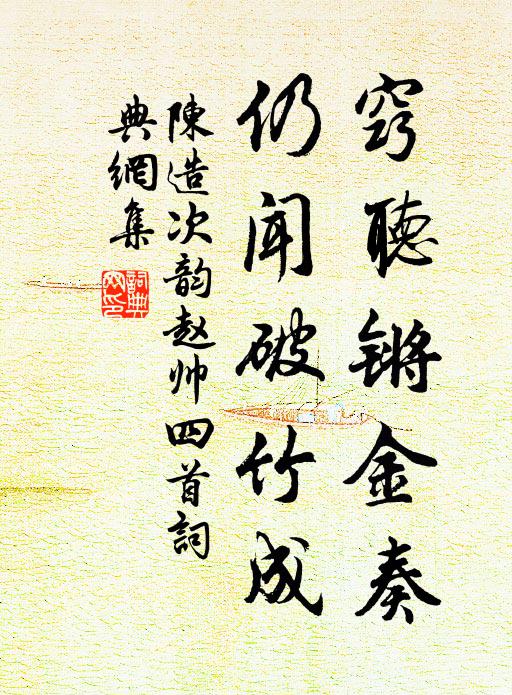 窃聽锵金奏
仍聞破竹成
陳造次韵赵帅四首詞
典網集
詞典网印